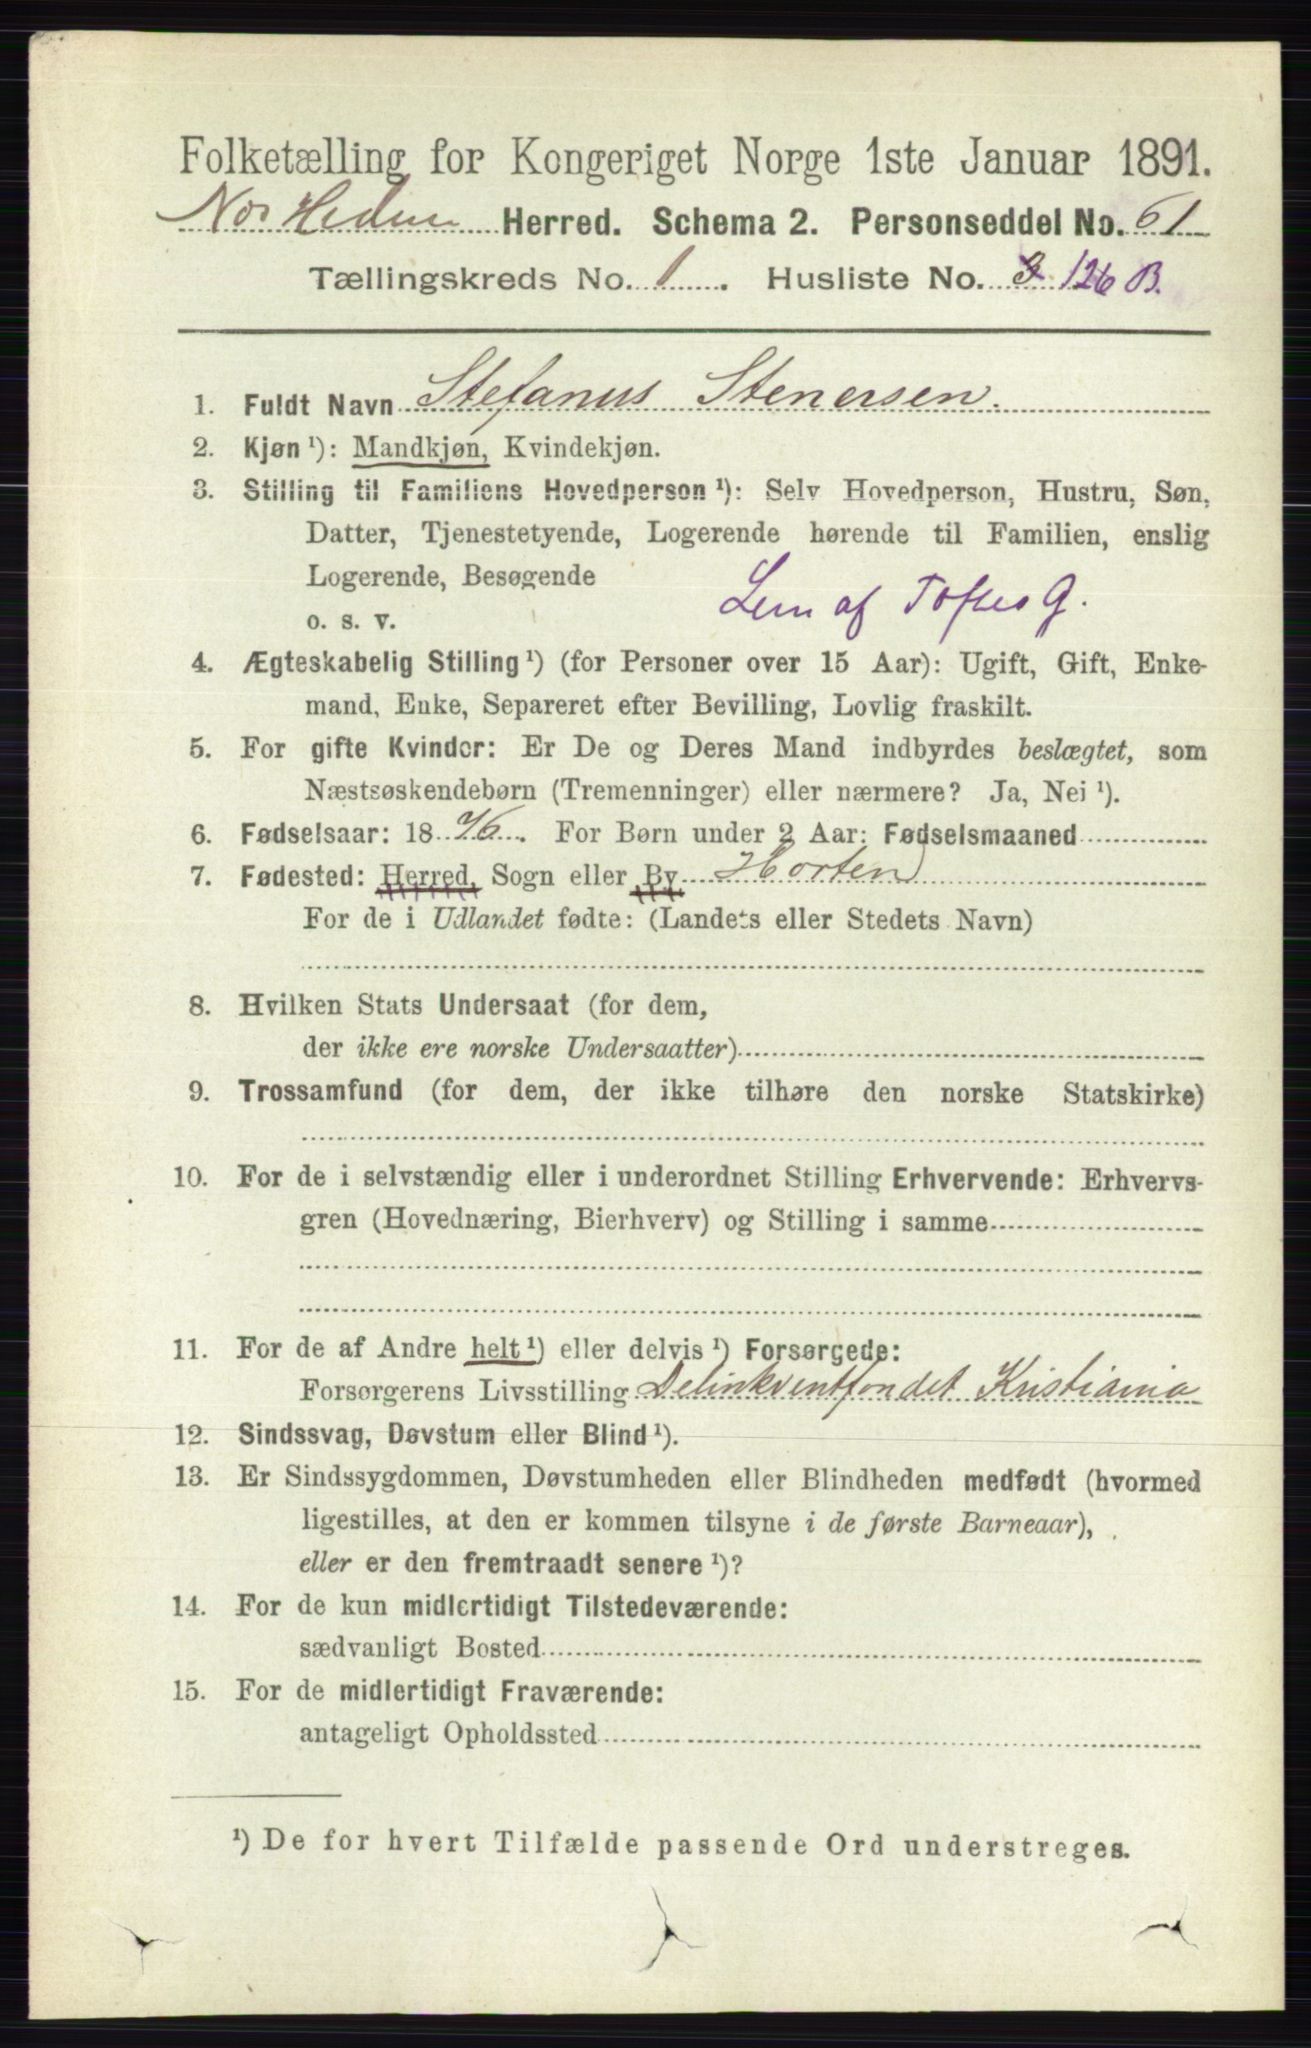 Folketælling for Kongeriget Norge 1ste Januar 1891.
Herred. Schema 2. Personseddel No. 61
Tællingskreds No. 1. Husliste No. 3 126 B.
1. Fuldt Navn Stefanus Stenersen.
2. Kjøn ¹): Mandkjøn, Kvindekjøn.
3. Stilling til Familiens Hovedperson ¹): Selv Hovedperson, Hustru, Søn,
Datter, Tjenestetyende, Logerende hørende til Familien, enslig
Logerende, Besøgende
o. s. v.
Lem af Toftes G.
4. Ægteskabelig Stilling ¹) (for Personer over 15 Aar): Ugift, Gift, Enke-
mand, Enke, Separeret efter Bevilling, Lovlig fraskilt.
5. For gifte Kvinder: Er De og Deres Mand indbyrdes beslægtet, som
Næstsøskendebørn (Tremenninger) eller nærmere? Ja, Nei ¹).
6. Fødselsaar: 1876. For Børn under 2 Aar: Fødselsmaaned
7. Fødested: Herred, Sogn eller By Horten
For de i Udlandet fødte: (Landets eller Stedets Navn)
8. Hvilken Stats Undersaat (for dem,
der ikke ere norske Undersaatter)
9. Trossamfund (for dem, der ikke tilhøre den norske Statskirke)
10. For de i selvstændig eller i underordnet Stilling Erhvervende: Erhvervs-
gren (Hovednæring, Bierhverv) og Stilling i samme
11. For de af Andre helt ¹) eller delvis ¹) Forsørgede:
Forsørgerens Livsstilling Delinkventfondet Kristiania
12. Sindssvag, Døvstum eller Blind ¹).
13. Er Sindssygdommen, Døvstumheden eller Blindheden medfødt (hvormed
ligestilles, at den er kommen tilsyne i de første Barneaar),
eller er den fremtraadt senere ¹)?
14. For de kun midlertidigt Tilstedeværende:
sædvanligt Bosted
15. For de midlertidigt Fraværende:
antageligt Opholdssted
¹) De for hvert Tilfælde passende Ord understreges.